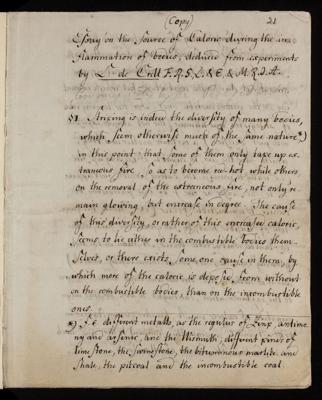 (Copy) 21
Essay on the Source of Caloric during the in-
flammation of bodies, deduced from experiments
by L. de Crell F.R.S. L. & E. & M.R.I.A.
§1 Striking is indeed the diversity of many bodies,
which seem otherwise much of the same nature*)
in this point, that some of them only take up ex-
traneous fire, so as to become red-hot, while others
on the removal of the extraneous fire, not only re-
main glowing, but increase in degree. The cause
of this diversity, or rather of this increased caloric,
seems to lie either in the combustible bodies them-
selves, or there exists some one cause in them, by
which more of the caloric is deposed from without
on the combustible bodies, than on the incombustible
ones.
*) f. e. different metalls, as the regulus of Zinc, antimo-
ny and arsenic, and the Wismuth, different kinds of
lime stone, the swinestone, the bituminous marlite and
shale, the pitcoal and the incombustible coal.